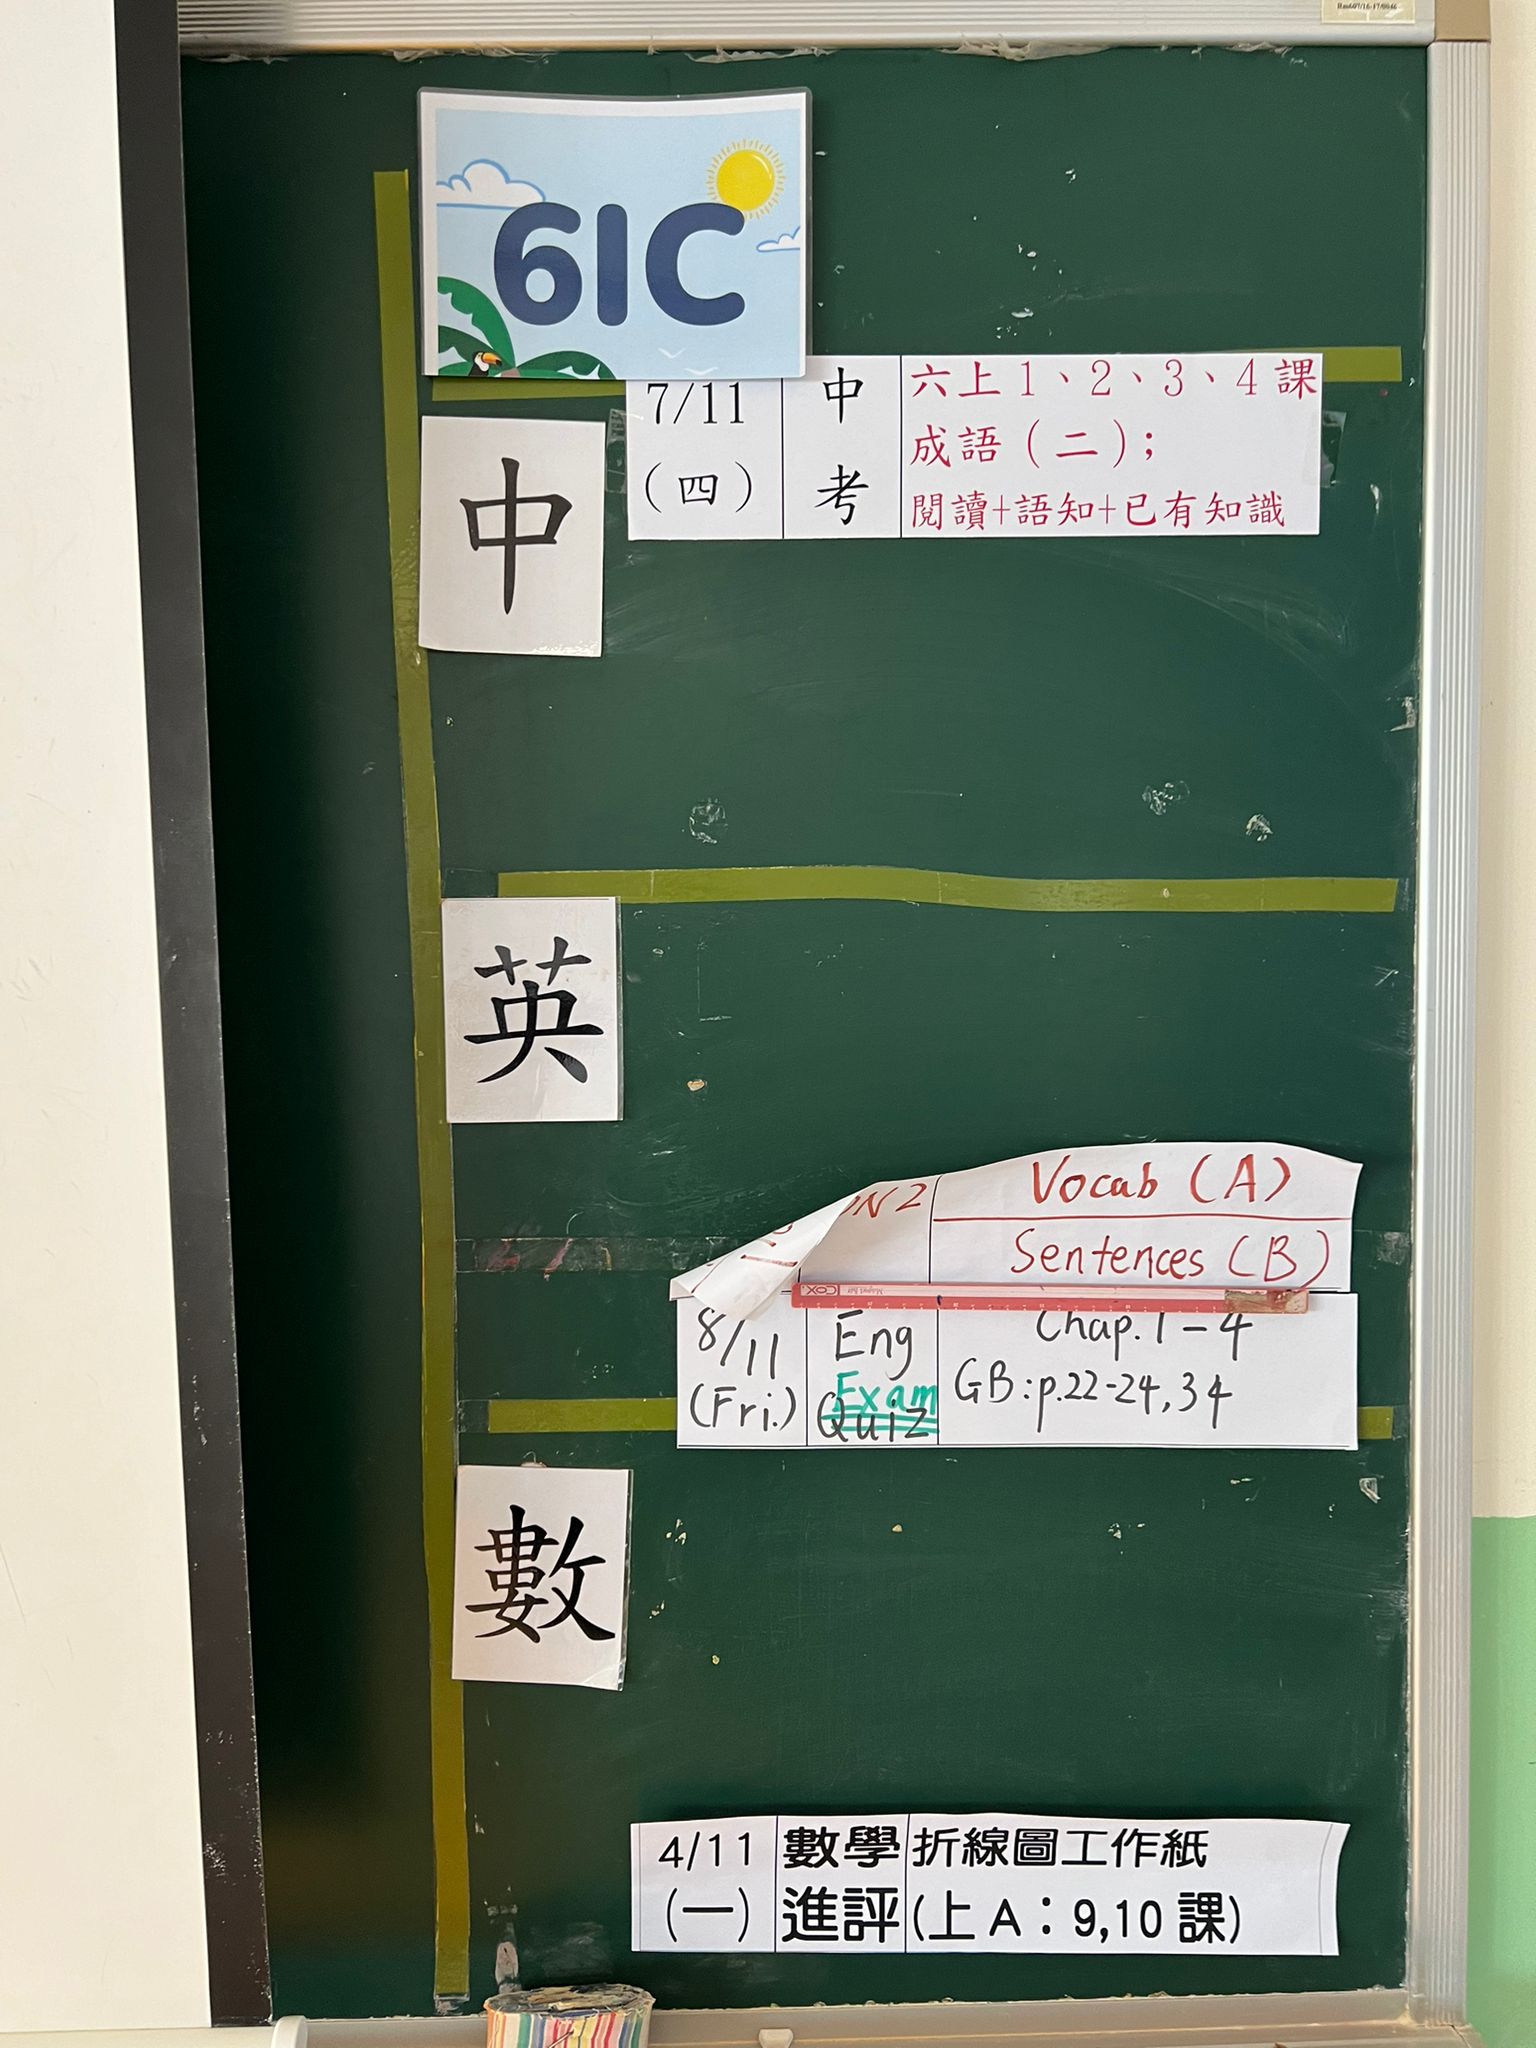 Rm607/16-17/0046
6IC
中
7/11
(四)
中
考
六上1、2、3、4課
成語(二);
閱讀+語知+已有知識
英
ON 2
Vocab (A)
Sentences (B)
COX.
8/11
(Fri.)
Eng
Exam
Quiz
Chap. 1-4
GB: p.22-24, 34
數
4/11
(一)
數學
進評
折線圖工作紙
(上A:9,10課)